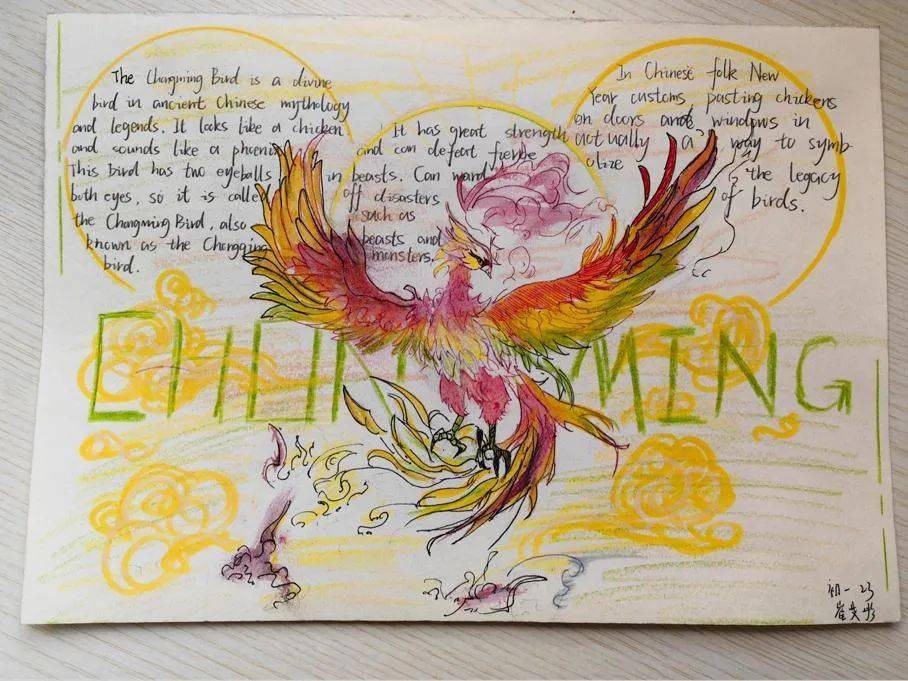 The Chongming Bird is a divine
bird in ancient Chinese mythology
and legends. It looks like a chicken
and sounds like a phoenix
This bird has two eyeballs in
both eyes, so it is called
the Chongming Bird, also
known as the Chongqing
bird.
It has great strength
and can defeat fierce
beasts. Can ward
off disasters
such as
beasts and
monsters.
In Chinese folk New
Year customs, pasting chickens
on doors and windows in
actually a way to symb-
olize the legacy
of birds.
CHON MING
初一 23
崔